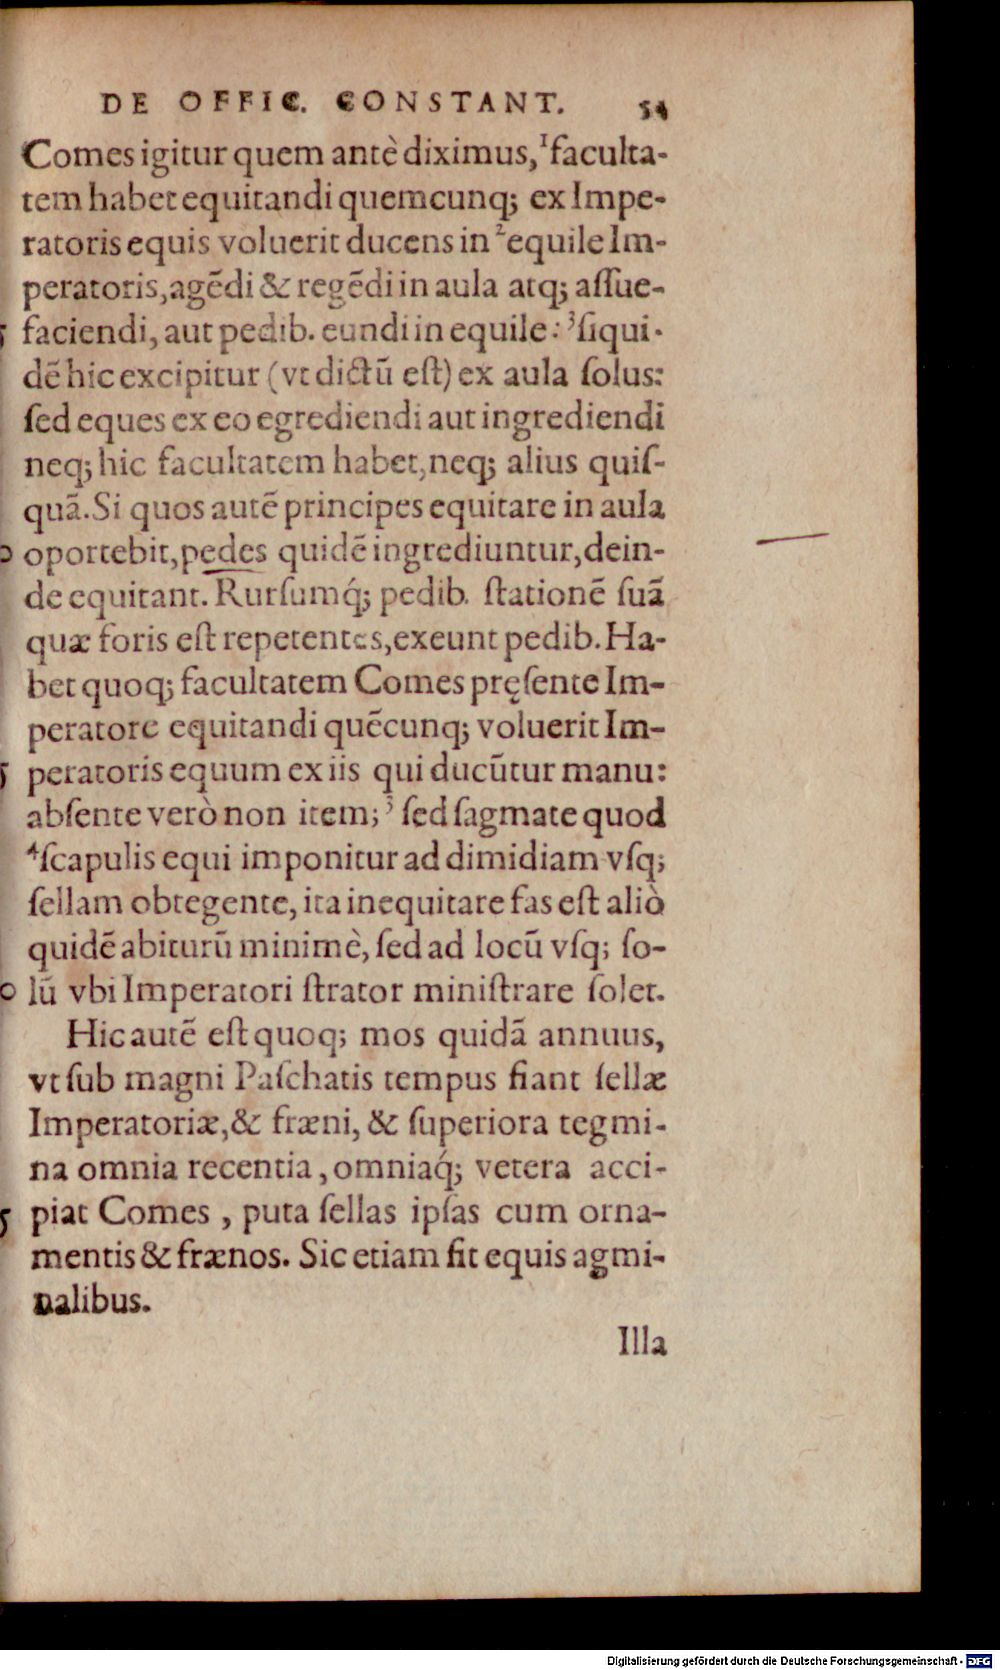 DE OFFIC. CONSTANT. 54
Comes igitur quem antè diximus,¹faculta-
tem habet equitandi quemcunq; ex Impe-
ratoris equis voluerit ducens in ²equile Im-
peratoris, agẽdi & regẽdi in aula atq; aſſue-
5 faciendi, aut pedib. eundi in equile: ³ſiqui-
dẽ hic excipitur (vt dictũ eſt) ex aula ſolus:
ſed eques ex eo egrediendi aut ingrediendi
neq; hic facultatem habet, neq; alius quiſ-
quã. Si quos autẽ principes equitare in aula
0 oportebit, pedes quidẽ ingrediuntur, dein-
de equitant. Rurſumq́; pedib. ſtationẽ ſuã
quæ foris eſt repetentes, exeunt pedib. Ha-
bet quoq; facultatem Comes pręſente Im-
peratore equitandi quẽcunq; voluerit Im-
5 peratoris equum ex iis qui ducũtur manu:
abſente verò non item;³ ſed ſagmate quod
⁴ſcapulis equi imponitur ad dimidiam vſq;
ſellam obtegente, ita inequitare fas eſt aliò
quidẽ abiturũ minimè, ſed ad locũ vſq; ſo-
0 lũ vbi Imperatori ſtrator miniſtrare ſolet.
Hic autẽ eſt quoq; mos quidã annuus,
vt ſub magni Paſchatis tempus fiant ſellæ
Imperatoriæ, & fræni, & ſuperiora tegmi-
na omnia recentia, omniaq́; vetera acci-
5 piat Comes, puta ſellas ipſas cum orna-
mentis & frænos. Sic etiam fit equis agmi-
nalibus.
Illa
Digitalisierung gefördert durch die Deutsche Forschungsgemeinschaft - DFG